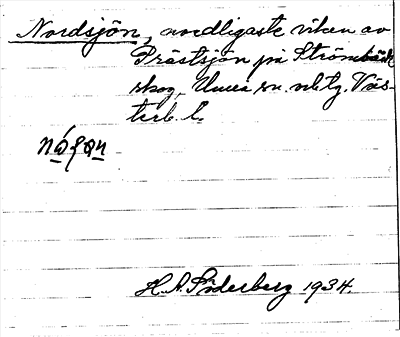 Nordsjön, nordligaste viken av
Prästsjön på Strömbäcks
skog, Umeå sn. vbtg. Väs-
terb. l.
H. A. Söderberg 1934.